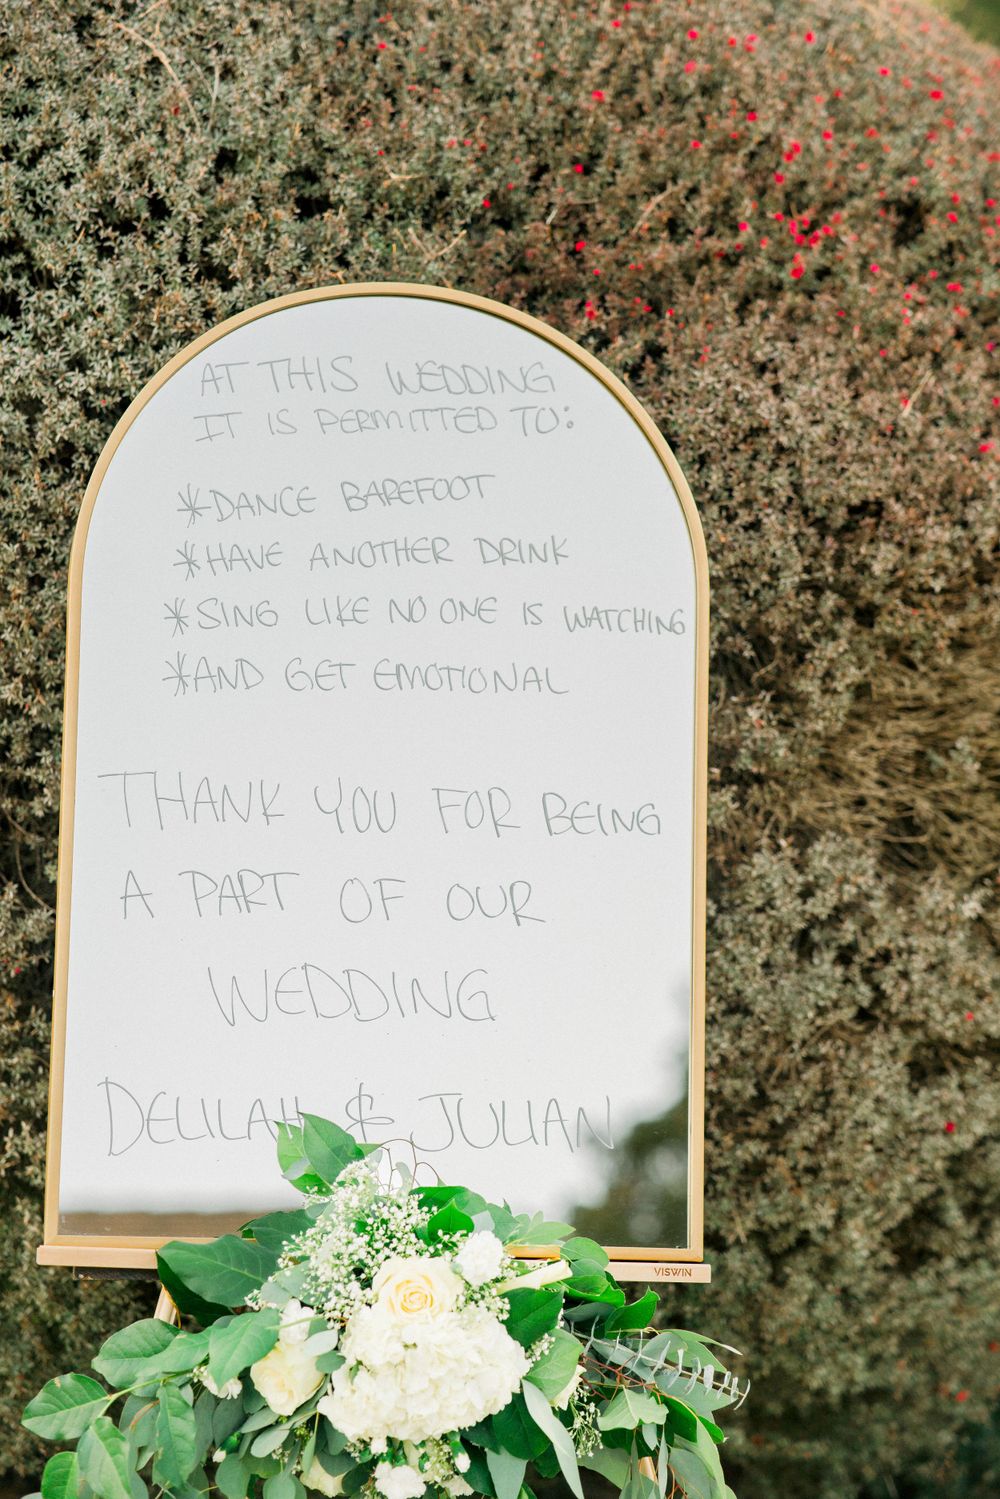 AT THIS WEDDING
IT IS PERMITTED TO:
*DANCE BAREFOOT
*HAVE ANOTHER DRINK
*SING LIKE NO ONE IS WATCHING
*AND GET EMOTIONAL
THANK YOU FOR BEING
A PART OF OUR
WEDDING
DELILAH & JULIAN
VISWIN